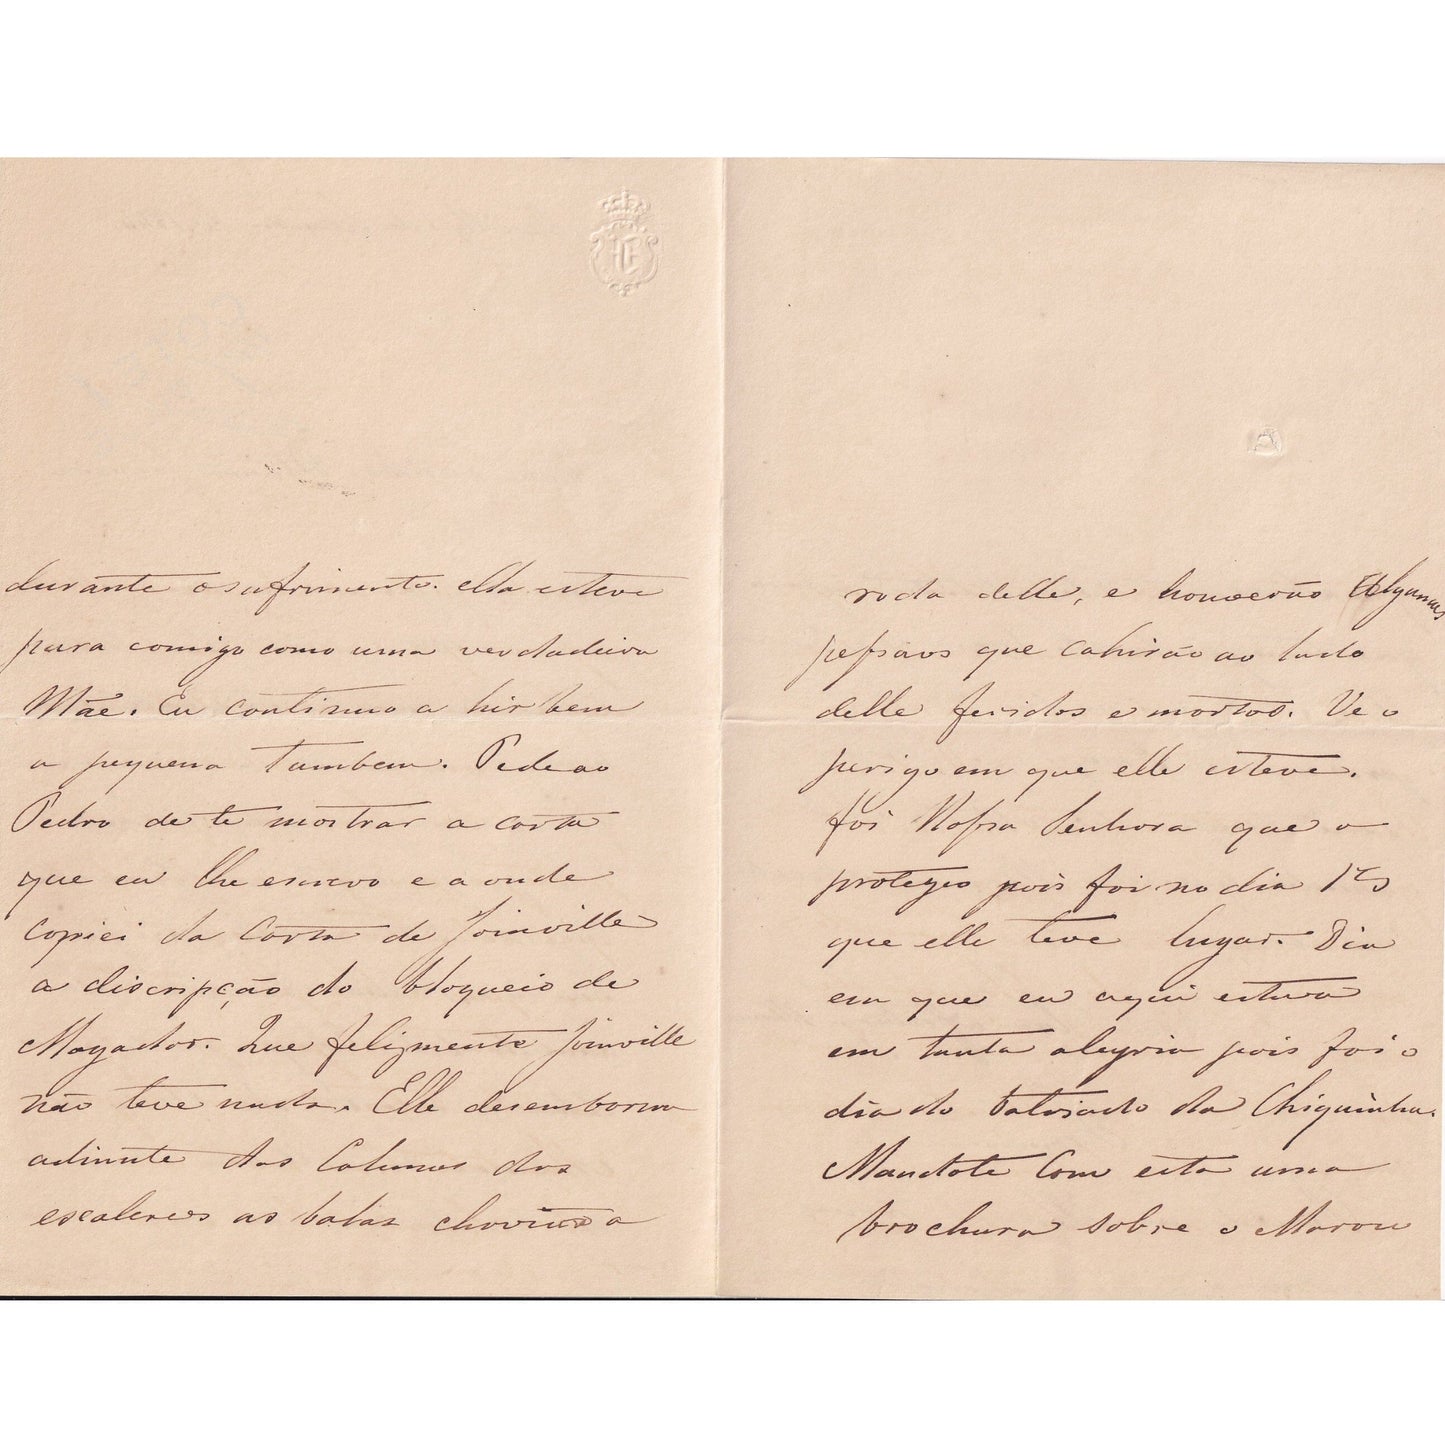 durante o sufrimento. ella esteve
para comigo como uma verdadeira
Mãe. Eu continuo a hir bem
a pequena tambem. Pede ao
Pedro de te mostrar a carta
que eu lhe escrevo e a onde
copiei da carta de Joinville
a discripção do bloqueio de
Mogador. Que felizmente Joinville
não teve nada. Elle desembarcou
adiante das Colunas dos
escaleres as balas chovião a
roda delle, e houverão Algumas
pessaos que cahirão ao lado
delle feridos e mortos. Ve o
perigo em que elle esteve.
foi Nossa Senhora que o
protegeo pois foi no dia 15
que elle teve lugar. Dia
em que eu aqui estava
em tanta alegria pois foi o
dia do batisado da Chiquinha.
Mandote Com esta uma
brochura sobre o Marou